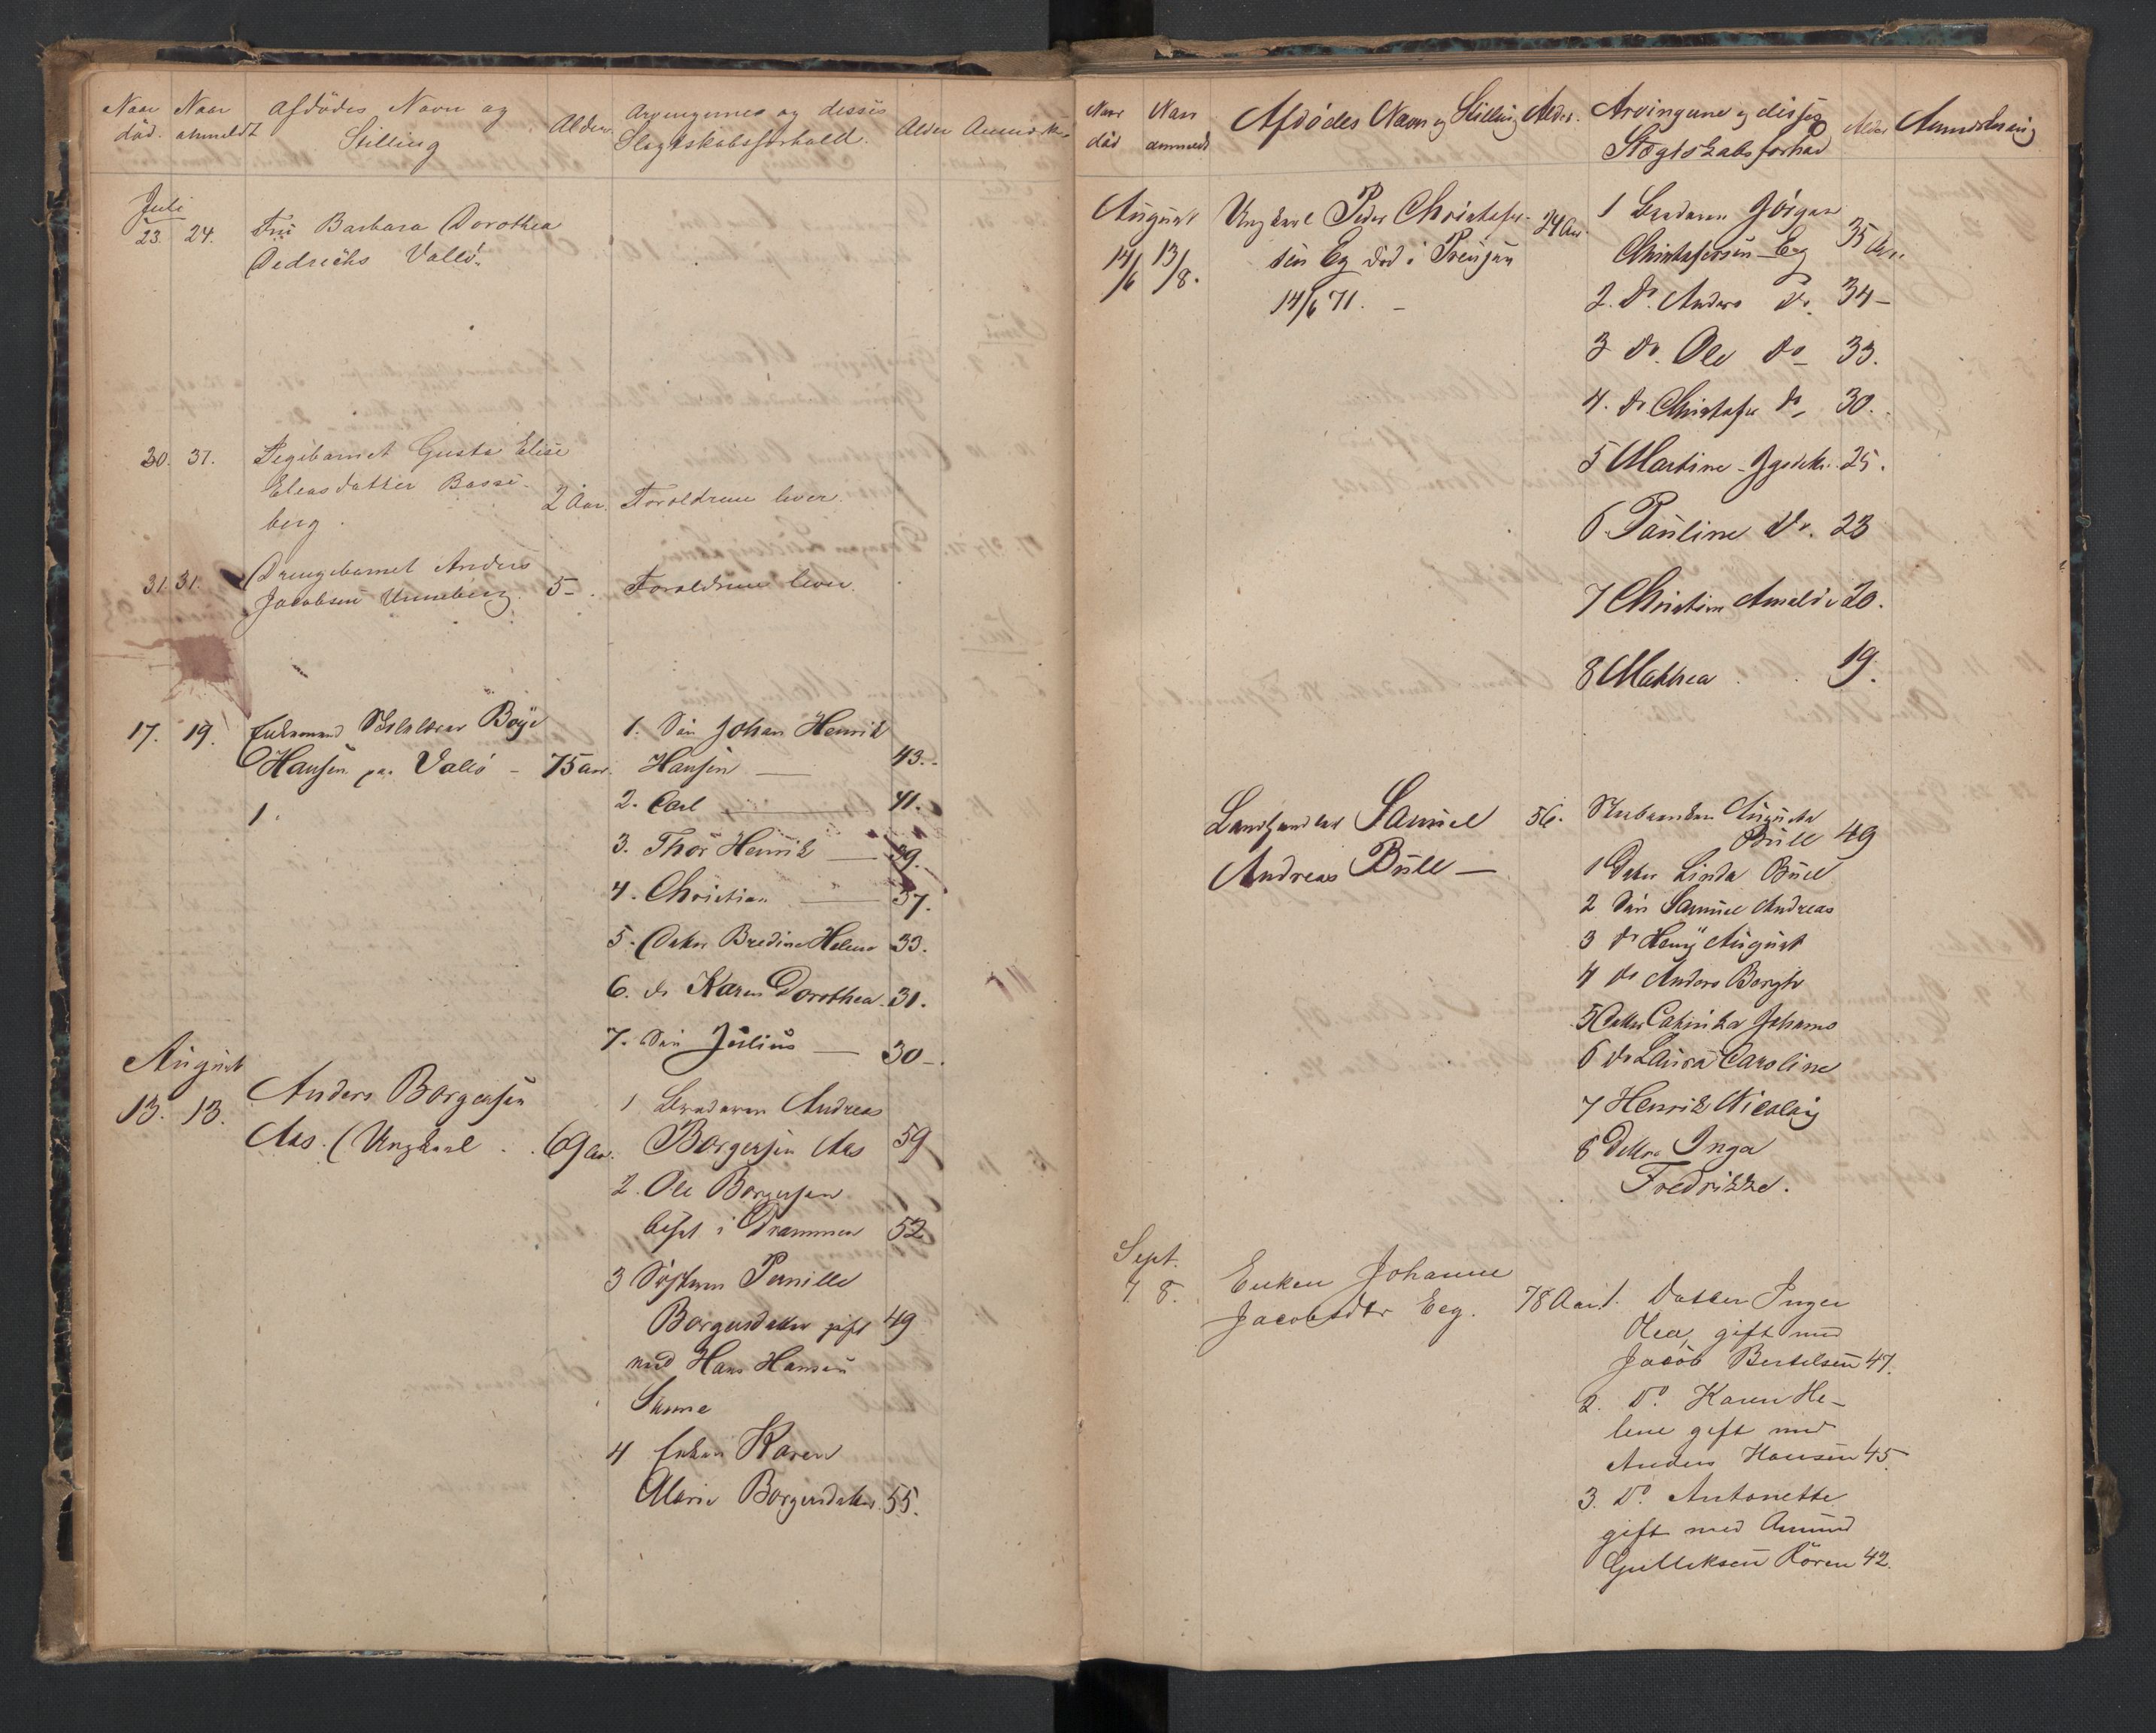 Naar død.
Naar anmeldt
Afdødes Navn og
Stilling
Alder
Arvingernes og disses
Slægtskabsforhold.
Alder
Anmærk.
Juli
23. 24. Fru Barbara Dorothea
Dedrichs Vallø.
30. 31. Pigebarnet Gusta Elise
Eleasdatter Basse-
berg. 2 Aar. Forældrene lever.
31. 31. Drengebarnet Anders
Jacobsen Unneberg. 5 – Forældrene lever.
17. 19. Enkemand Boye
Hansen paa Vallø – 75 aar.
1.
1. Søn Johan Henrik
Hansen — 43.
2. Carl — 41.
3. Thor Henrik — 39.
4. Christian — 37.
5. Datter Bredine Helene 33.
6. do Karen Dorothea. 31.
7. Søn Julius — 30 –
August
13. 13. Anders Borgersen
Aas. (Ungkarl. 69 aar.
1 Broderen Andreas
Borgersen Aas 59
2. Ole Borgersen
bosat i Drammen 52
3 Søsteren Pernille
Borgersdatter gift 49
med Hans Hansen
4 Enken Karen
Marie Borgersdatter. 55.
Naar død
Naar anmeldt
Afdødes Navn og Stilling
Alder.
Arvingerne og disses
Slægtskabsforhold
Alder
Anmærkning
August
14/6 13/8. Ungkarl Peder Christofer-
sen Eg død i
14/6 71. – 24 Aar.
1 Broderen Jörgen
Christofersen Eg 35 Aar
2. do. Anders do. 34 –
3 do. Ole do – 33.
4. do Christofer do, 30.
5 Martine 25.
6. Pauline do. 23
7 Christine Amalie 20.
8 Mathea 19.
Landhandler Samuel
Andreas Bull — 56.
Enkefru Augusta
Bull 49
1 Datter Linda Bull
2 Søn Samuel Andreas
3 do Henry August
4 do Anders Borgh
5 Datter Cathinka Johanne
6 do Laura Caroline
7 Henrik Nicolay
8 Datter Inga
Fredrikke.
Sept.
7. 8. Enken Johanne
Jacobsdtr Eeg. 78 Aar
1. Datter Inger
Olea, gift med
Jacob Bertelsen 47.
2. Do. Karen He-
lene gift med
Anders Hansen 45.
3. Do. Antonette
gift med Amund
Gulliksen Rören 42.